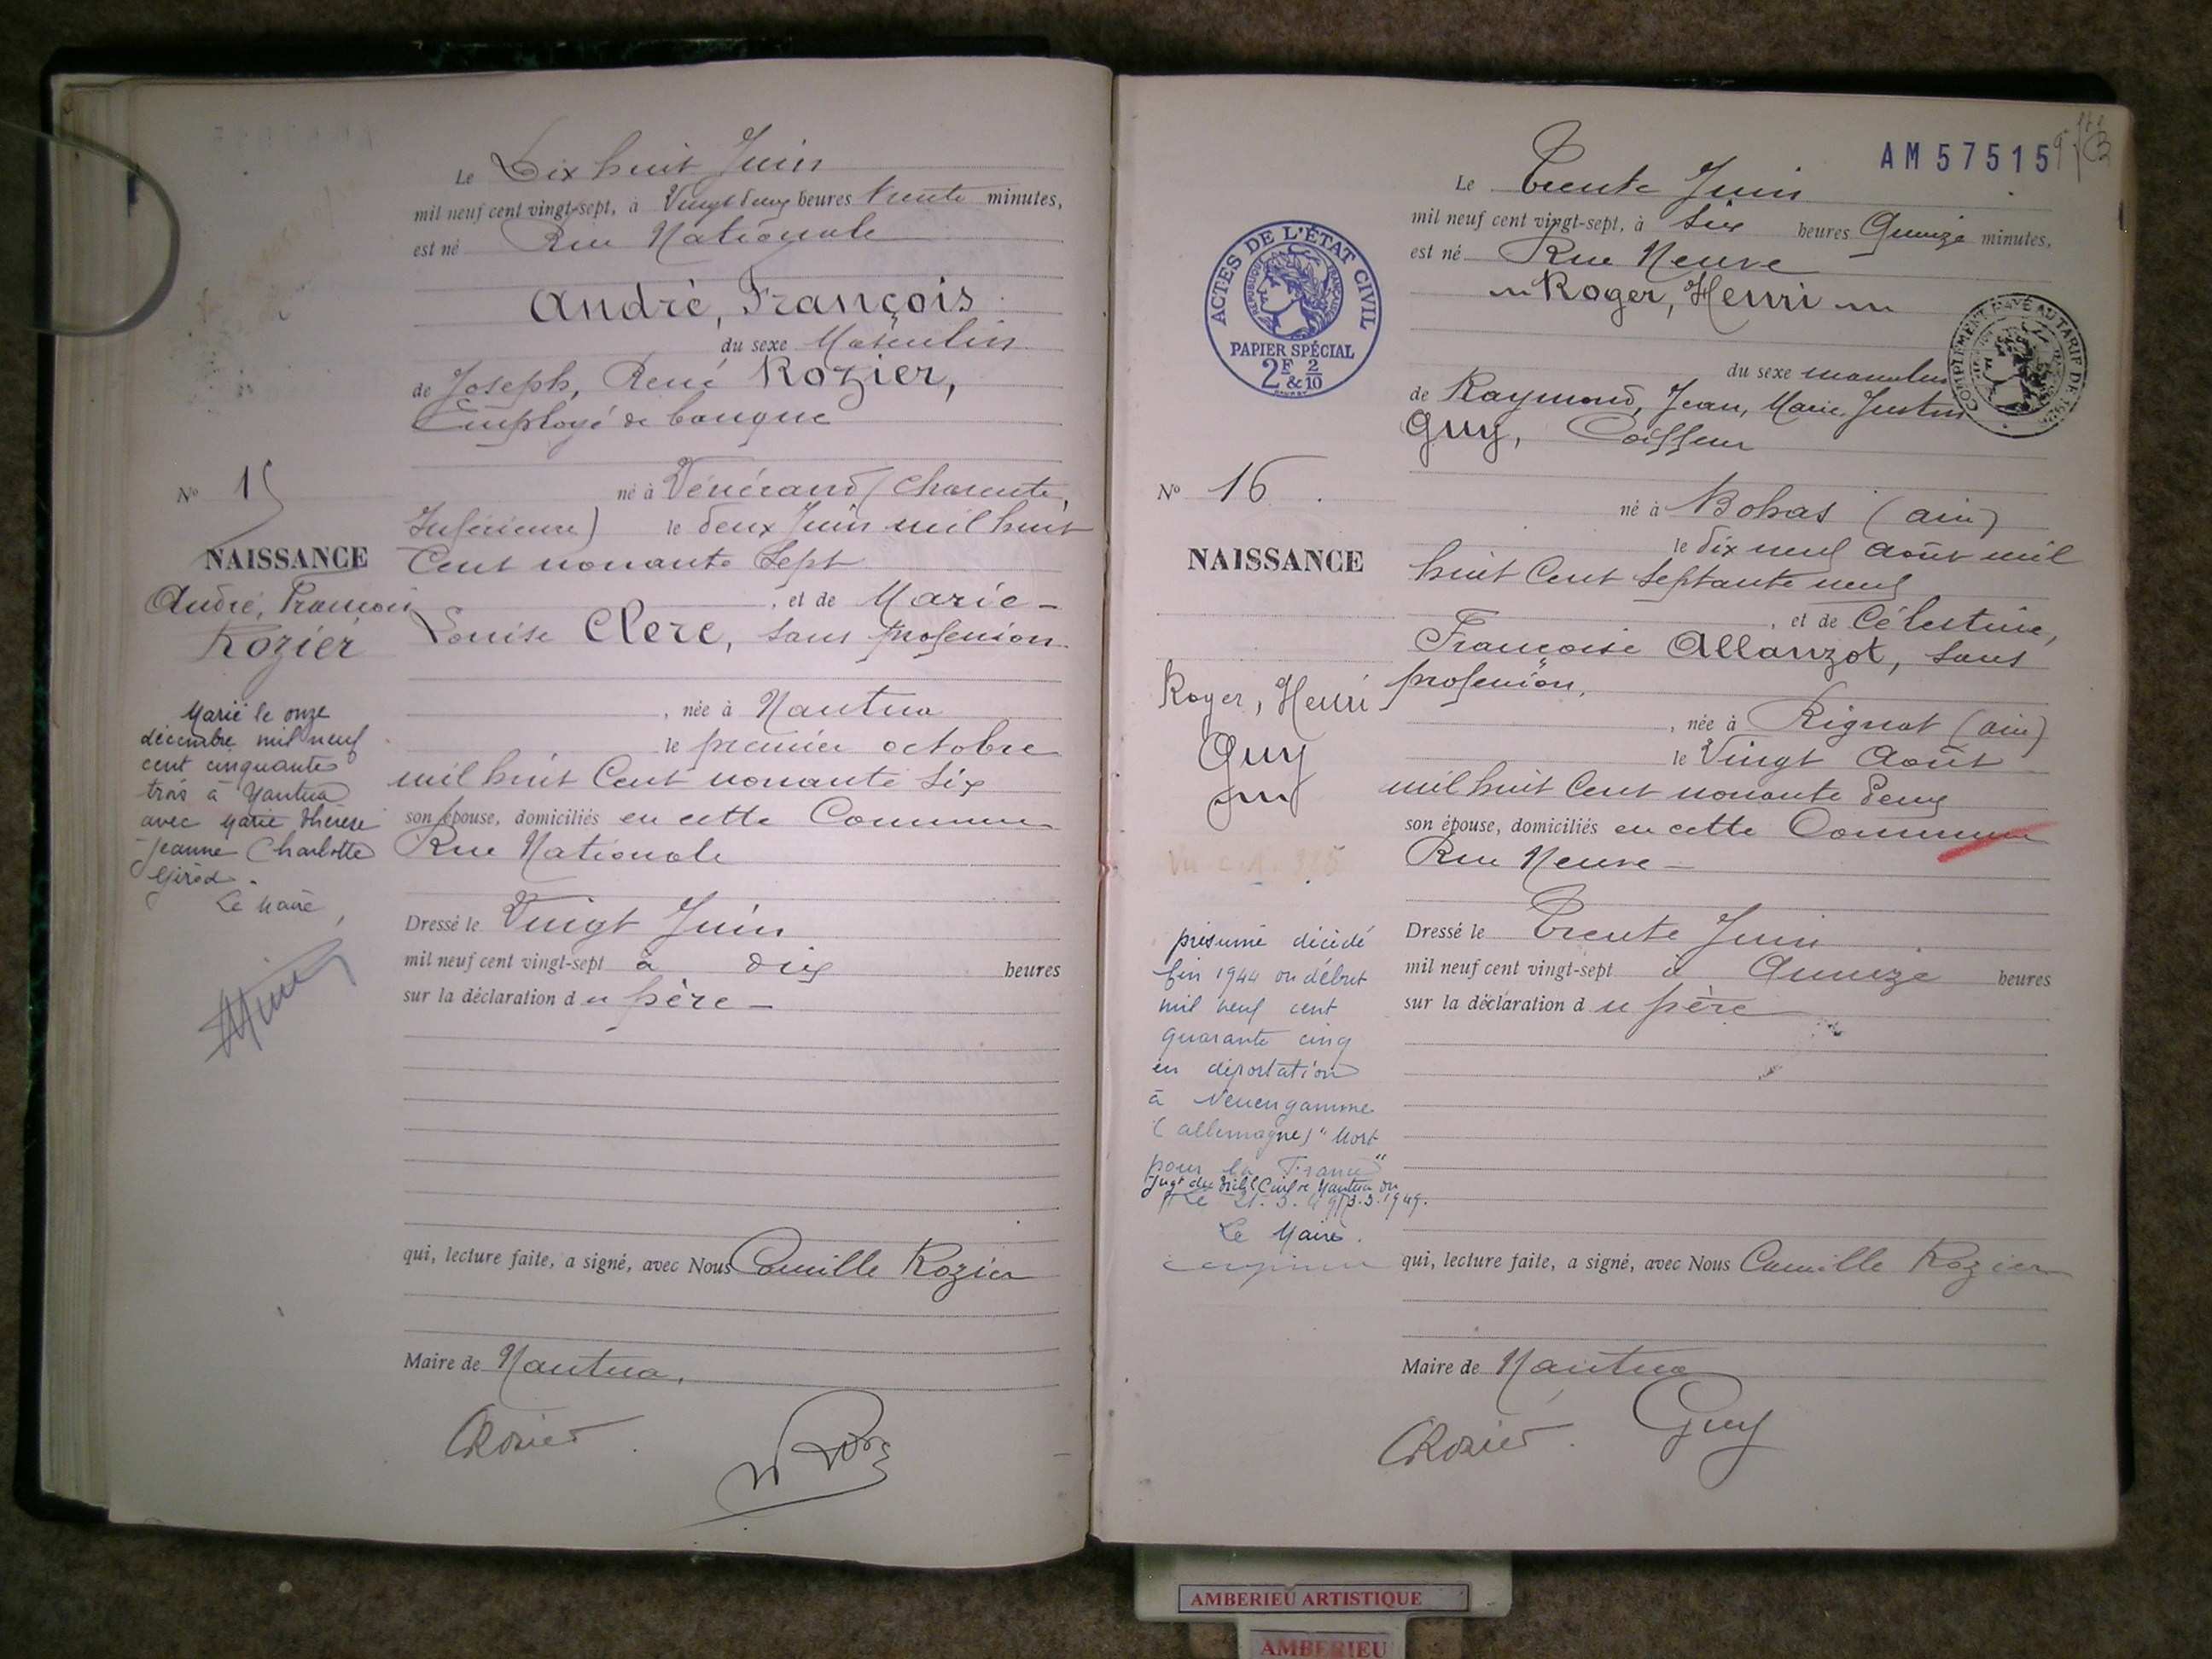 Le Dix huit Juin
mil neuf cent vingt-sept, à Vingt deux heures trente minutes,
est né Rue Nationale
André, François
du sexe Masculin
de Joseph, René Rozier,
Employé de banque
né à Vénérand (Charente
Inférieure) le deux Juin mil huit
Cent nonante Sept
, et de Marie-
Louise Clerc, sans profession
, née à Nantua
le premier octobre
mil huit Cent nonante Six
son épouse, domiciliés en cette Commune
Rue Nationale
Dressé le Vingt Juin
mil neuf cent vingt-sept à dix heures
sur la déclaration du père
qui, lecture faite, a signé, avec Nous Camille Rozier
Maire de Nantua.
CRozier
No 15
NAISSANCE
André, François
Rozier
Marié le onze
décembre mil neuf
cent cinquante
trois à Nantua
avec Marie Thérèse
Jeanne Charlotte
Girod.
Le Maire,
AM 57515
Le Trente Juin
mil neuf cent vingt-sept, à Six heures Quinze minutes,
est né Rue Neuve
Roger, Henri
du sexe masculin
de Raymond, Jean, Marie Justin
Guy, Coiffeur
né à Bohas (ain)
le dix neuf août mil
huit Cent Septante neuf
, et de Célestine,
Françoise Allanzot, sans
profession,
, née à Rignat (ain)
le Vingt Août
mil huit Cent nonante deux
son épouse, domiciliés en cette Commune
Rue Neuve
Dressé le Trente Juin
mil neuf cent vingt-sept à Quinze heures
sur la déclaration du père
qui, lecture faite, a signé, avec Nous Camille Rozier
Maire de Nantua
CRozier. Guy
ACTES DE L'ÉTAT CIVIL
RÉPUBLIQUE FRANÇAISE
PAPIER SPÉCIAL
2F & 2/10
COMPLÉMENT PAYÉ AU TARIF DE
No 16
NAISSANCE
Roger, Henri
Guy
présumé décédé
fin 1944 ou début
mil neuf cent
quarante cinq
en déportation
à Neuengamme
(allemagne) "Mort
pour la France"
Jugt du Tribl Civil de Nantua du
Le 21.3.49 3.3.1949.
Le Maire.
AMBERIEU ARTISTIQUE
AMBERIEU